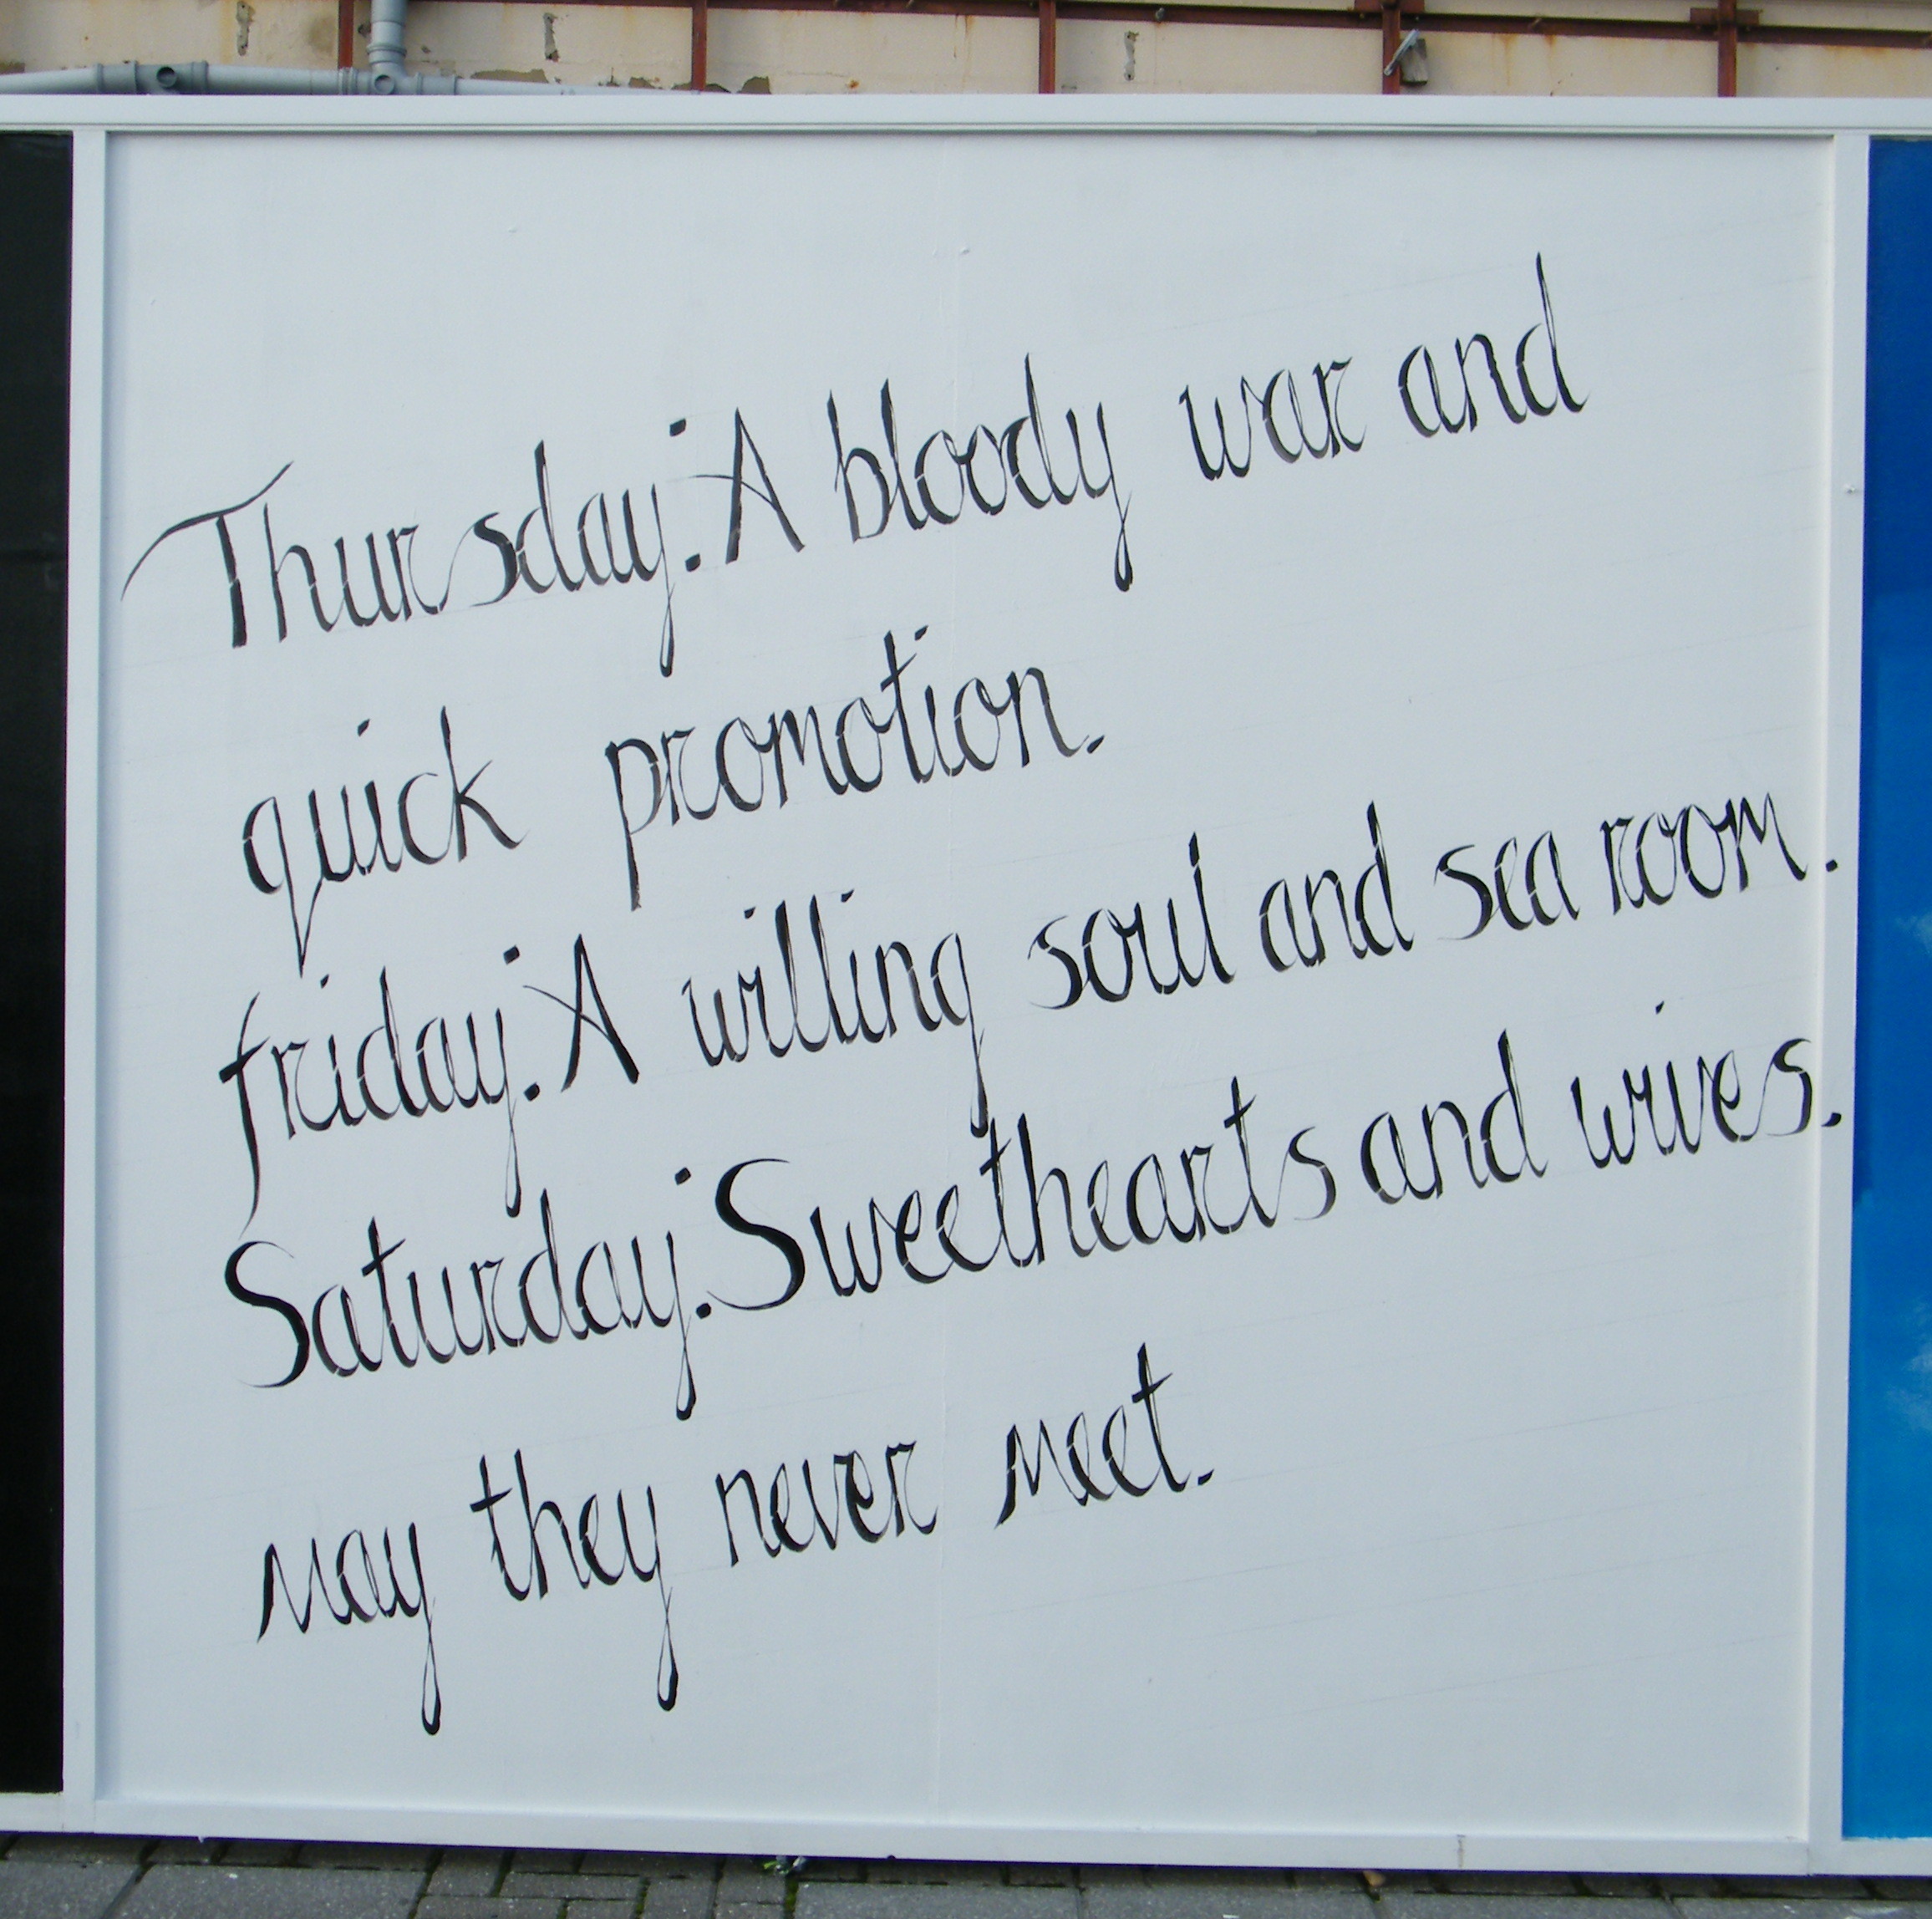 Thursday: A bloody war and
quick promotion.
friday: A willing soul and sea room.
Saturday: Sweethearts and wives.
may they never meet.